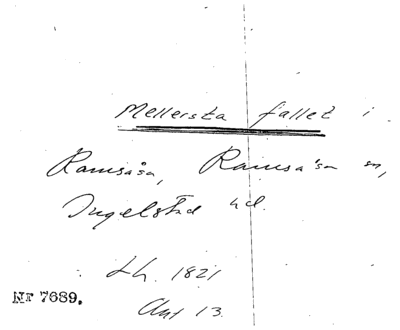 Mellersta fallet i
Ramsåsa, Ramsåsa sn,
Ingelstad hd.
Lh. 1821
Akt 13.
Nr 7689.